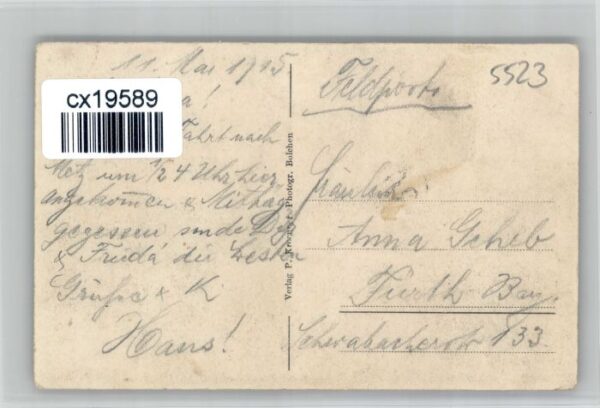 11. Mai 1915
cx19589
a!
Fahrt nach
Metz um 1/2 4 Uhr hier
angekommen & Mittag
gegessen sende Dir
& Frieda die besten
Grüße & K
Hans!
Verlag P. Photogr. Bolchen
Feldpost
5523
Fräulein
Anna Scheb
Fürth Bay.
Schwabacherstr 133.